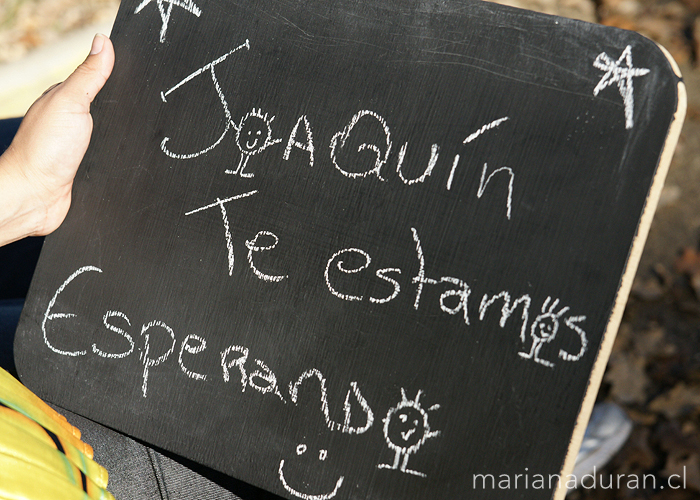 JOAQUín
Te estamos
EspeRanDO
marianaduran.cl